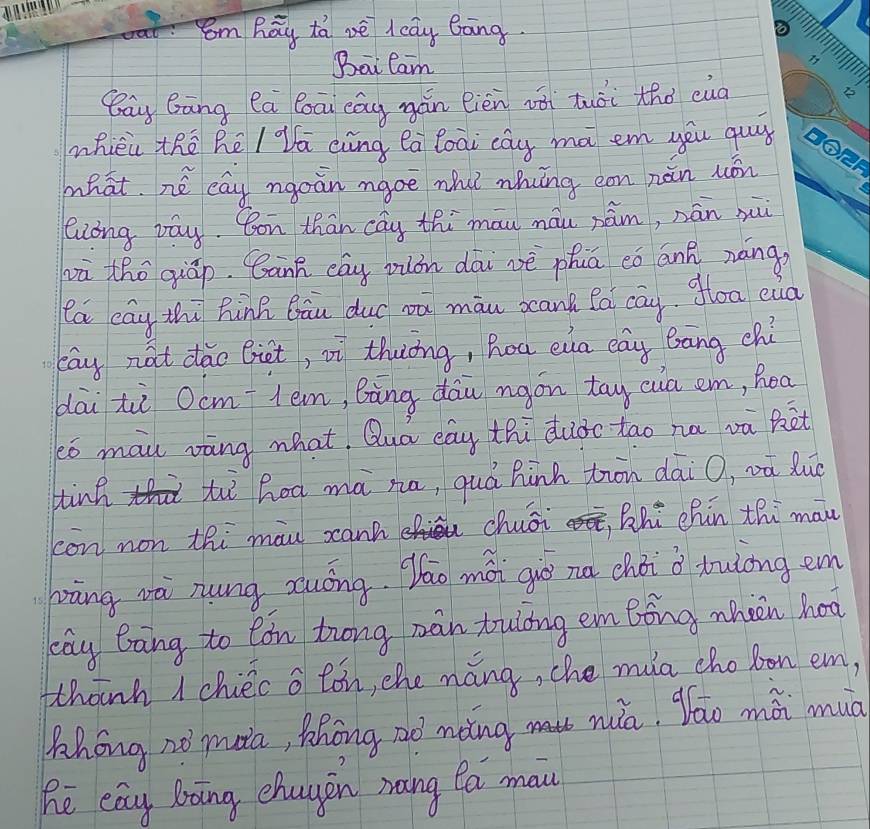 bài: Em hãy tả về 1 cây bàng.
Bài làm
Cây bàng là loài cây gắn liền với tuổi thơ của
nhiều thế hệ / Và cũng là loài cây mà em yêu quý
nhất. rễ cây ngoằn ngoè như những con rắn uốn
lượng vậy. Còn thân cây thì màu nâu sẫm, sần sùi
và thô giáp. Cành cây vươn dài về phiá có ánh sáng,
lá cây thì hình bầu dục và màu xanh lá cây. Hoa của
cây rất đặc biệt, vì thường, hoa của cây bàng chỉ
dài từ 0cm - 1cm, bằng đầu ngón tay của em, hoa
có màu vàng nhạt. Quả cây thì được tạo ra và kết
tinh từ hoa mà ra, quả hình tròn dài O, và lúc
còn non thì màu xanh chuối, khi chín thì màu
vàng và rụng xuống. Vào mỗi giờ ra chơi ở trường em
cây bàng to lớn trong sân trường em bỗng nhiên hoá
thành 1 chiếc ô lớn, che nắng, che mưa cho bọn em,
không sợ mưa, không sợ nắng nữa. Vào mỗi mùa
hè cây bàng chuyển sang lá màu
11
12